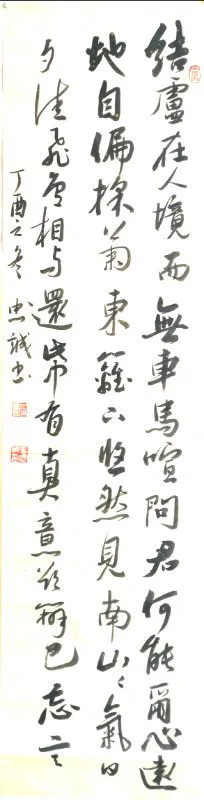 結廬在人境而無車馬喧問君何能爾心遠
地自偏採菊東籬下悠然見南山々氣日
夕佳飛鳥相与還此中有真意欲辨已忘言
丁酉之冬 忠誠書